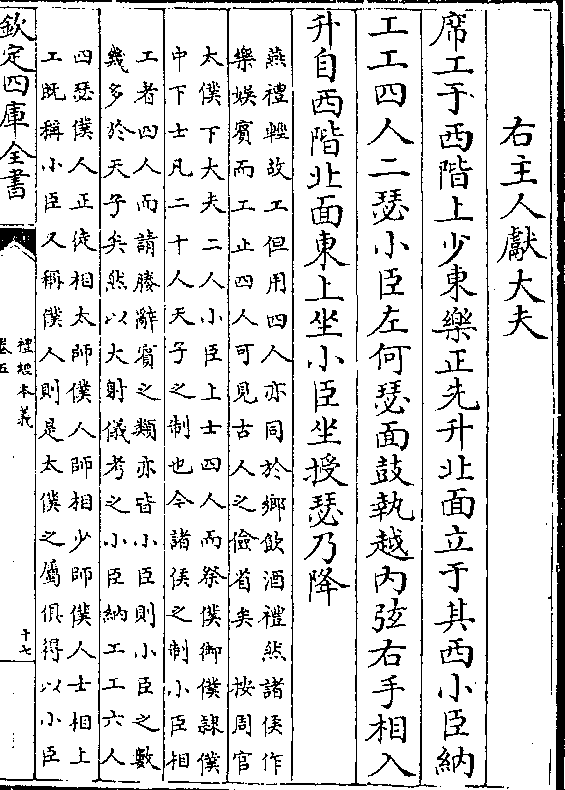 右主人獻大夫
席工于西階上少東樂正先升北面立于其西小臣納
工工四人二瑟小臣左何瑟面鼓執越内弦右手相入
升自西階北面東上坐小臣坐授瑟乃降
燕禮輕故工但用四人亦同於鄉飲酒禮然諸侯作
樂娱賓而工止四人可見古人之儉省矣 按周官
太僕下大夫二人小臣上士四人而祭僕御僕隸僕
中下士凡二十人天子之制也今諸侯之制小臣相
工者四人而請媵辭賓之類亦皆小臣則小臣之數
幾多於天子矣然以大射儀考之小臣納工工六人
四瑟僕人正徒相太師僕人師相少師僕人士相上
工既稱小臣又稱僕人則是太僕之屬俱得以小臣
欽定四庫全書
禮經本義
卷五
十七